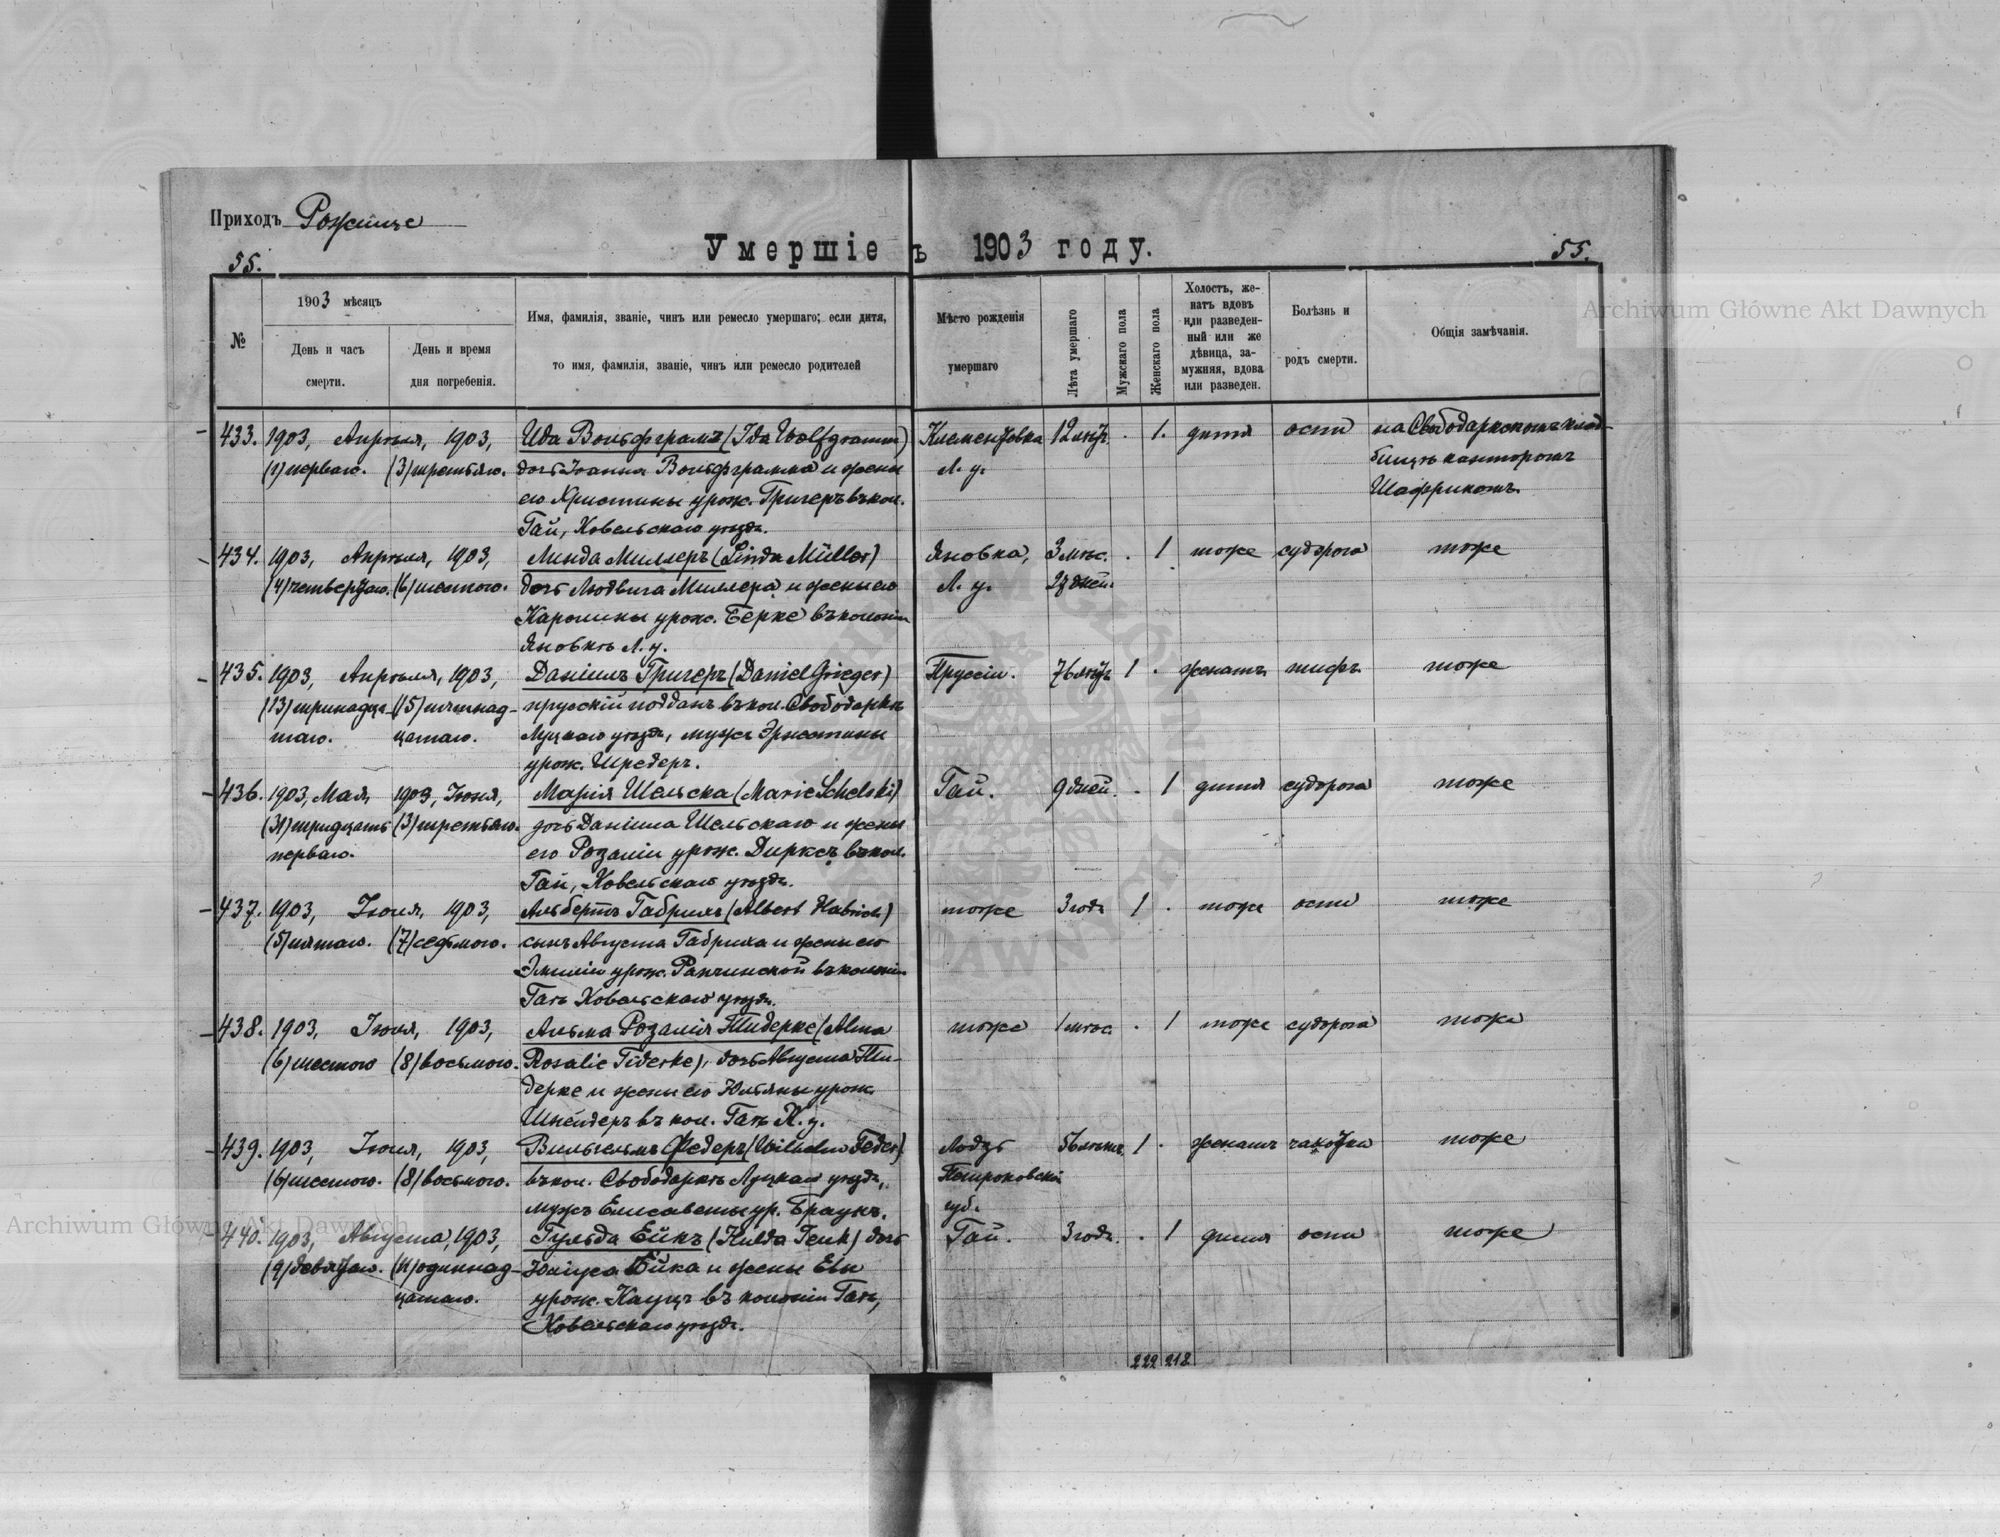 Приходъ Рожище
Умершіе въ 1903 году.
55.
55.
№
1903 мѣсяцъ
День и часъ смерти.
День и время дня погребенія.
Имя, фамилія, званіе, чинъ или ремесло умершаго; если дитя,
то имя, фамилія, званіе, чинъ или ремесло родителей
Мѣсто рожденія
умершаго
Лѣта умершаго
Мужскаго пола
Женскаго пола
Холостъ, же-
натъ вдовъ
или разведен-
ный или же
дѣвица, за-
мужняя, вдова
или разведен.
Болѣзнь и
родъ смерти.
Общія замѣчанія.
Archiwum Główne Akt Dawnych
433. 1903, Апрѣля, 1903, Ида Вольфграмъ (Ida Wolfgramm) Клементовка 12 лѣтъ . 1. дитя оспа на Свободарскомъ клад-
(1) перваго. (3) третьяго. дочь Іоанна Вольфграма и жены Л. у. бищѣ канторомъ
его Христины урож. Григеръ въ кол. Шафрикомъ.
Гай, Ковельскаго уѣзда.
434. 1903, Апрѣля, 1903, Линда Миллеръ (Linda Müller) Яновка, 3 мѣс. . 1 тоже судорога тоже
(4) четвертаго. (6) шестого. дочь Людвига Миллера и жены его Л. у. 28 дней.
Каролины урож. Берке въ колоніи
Яновкѣ Л. у.
435. 1903, Апрѣля, 1903, Даніилъ Григеръ (Daniel Grieger) Пруссіи. 76 лѣтъ 1 . женатъ тифъ тоже
(13) тринадца- (15) пятнад- прусскій поддан. въ кол. Свободаркѣ
таго. цатаго. Луцкаго уѣзда, мужъ Эрнстины
урож. Шредеръ.
436. 1903, Мая, 1903, Іюня, Марія Шельска (Marie Schelski) Гай. 9 дней. . 1 дитя судорога тоже
(31) тридцать (3) третьяго. дочь Даніила Шельскаго и жены
перваго. его Розаліи урож. Диркс въ кол.
Гай, Ковельскаго уѣзда.
437. 1903, Іюня, 1903, Альбертъ Габрихъ (Albert Habrich) тоже 3 года 1 . тоже оспа тоже
(5) пятаго. (7) седьмого. сынъ Августа Габриха и жены его
Эмиліи урож. въ колоніи
Гаѣ Ковельскаго уѣзда.
438. 1903, Іюня, 1903, Альма Розалія Тидерке (Alma тоже 1 мѣс. . 1 тоже судорога тоже
(6) шестого (8) восьмого. Rosalie Tiderke), дочь Августа Ти-
дерке и жены его Юльяны урож.
Шнейдеръ въ кол. Гаѣ К. у.
439. 1903, Іюня, 1903, Вильгельмъ Федеръ (Wilhelm Feder) Лодзь 56 лѣтъ 1 . женатъ чахотка тоже
(6) шестого. (8) восьмого. въ кол. Свободаркѣ Луцкаго уѣзда, Петроковской
мужъ Елисаветы ур. Браунъ. губ.
Archiwum Główne Akt Dawnych
440. 1903, Августа, 1903, Гульда Ейкъ (Hulda Jeuk) дочь Гай. 3 года . 1 дитя оспа тоже
(9) девятаго. (11) одиннад- Юліуса Ейка и жены Евы
цатаго. урож. Кауцъ въ колоніи Гаѣ,
Ковельскаго уѣзда.
222 218